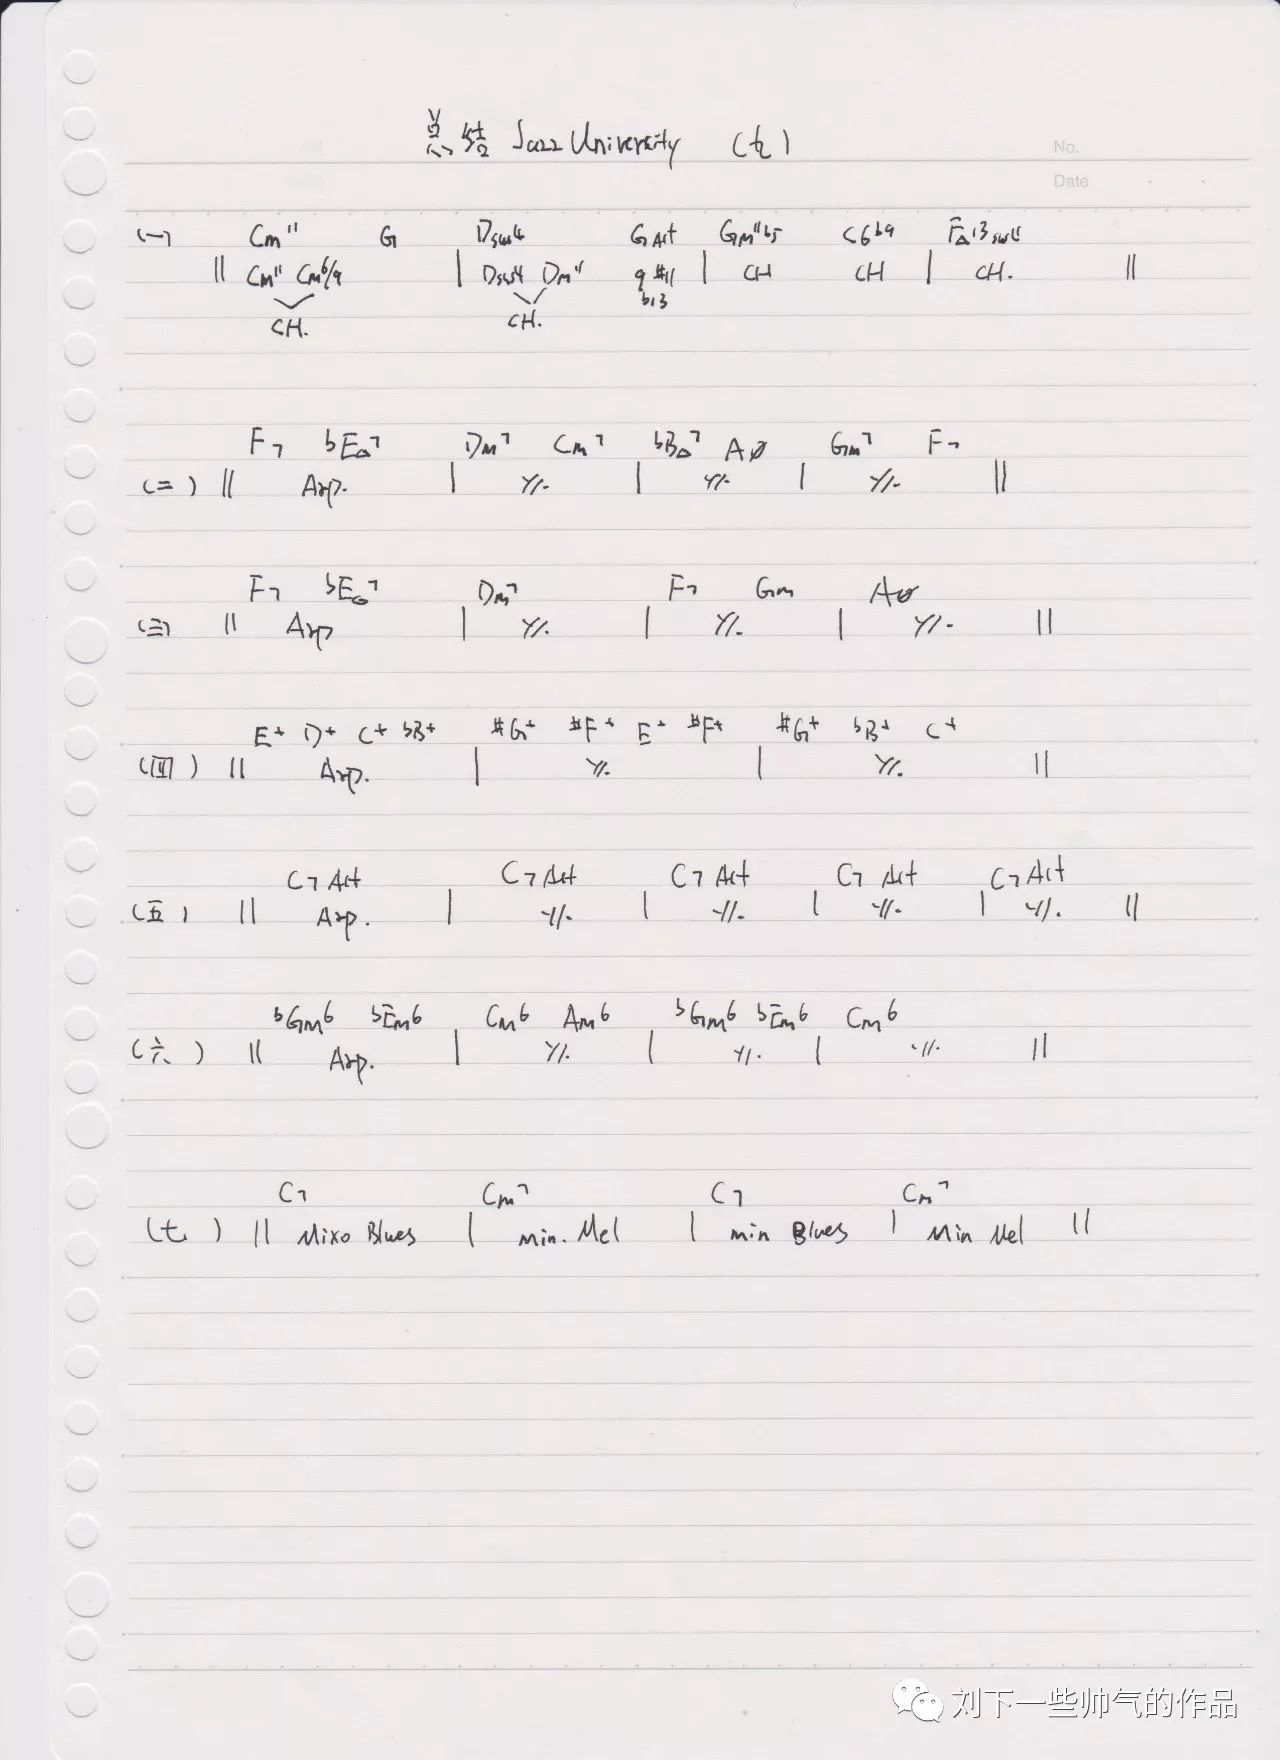 总结 Jazz University (七)
No.
Date
(一) Cm11 G Dsus4 GAlt Gm11b5 C6b9 F△13sus4
|| Cm11 Cm6/9 | Dsus4 Dm11 9 #11 | CH CH | CH. ||
b13
CH. CH.
F7 bE△7 Dm7 Cm7 bB△7 Aø Gm7 F7
(二) || Arp. | ٪ | ٪ | ٪ ||
F7 bE△7 Dm7 F7 Gm Aø
(三) || Arp | ٪ | ٪ | ٪ ||
E+ D+ C+ bB+ #G+ #F+ E+ #F+ #G+ bB+ C+
(四) || Arp. | ٪ | ٪ ||
C7 Alt C7 Alt C7 Alt C7 Alt C7 Alt
(五) || Arp. | ٪ | ٪ | ٪ | ٪ ||
bGm6 bEm6 Cm6 Am6 bGm6 bEm6 Cm6
(六) || Arp. | ٪ | ٪ | ٪ ||
C7 Cm7 C7 Cm7
(七) || Mixo Blues | min. Mel | min Blues | Min Mel ||
刘下一些帅气的作品